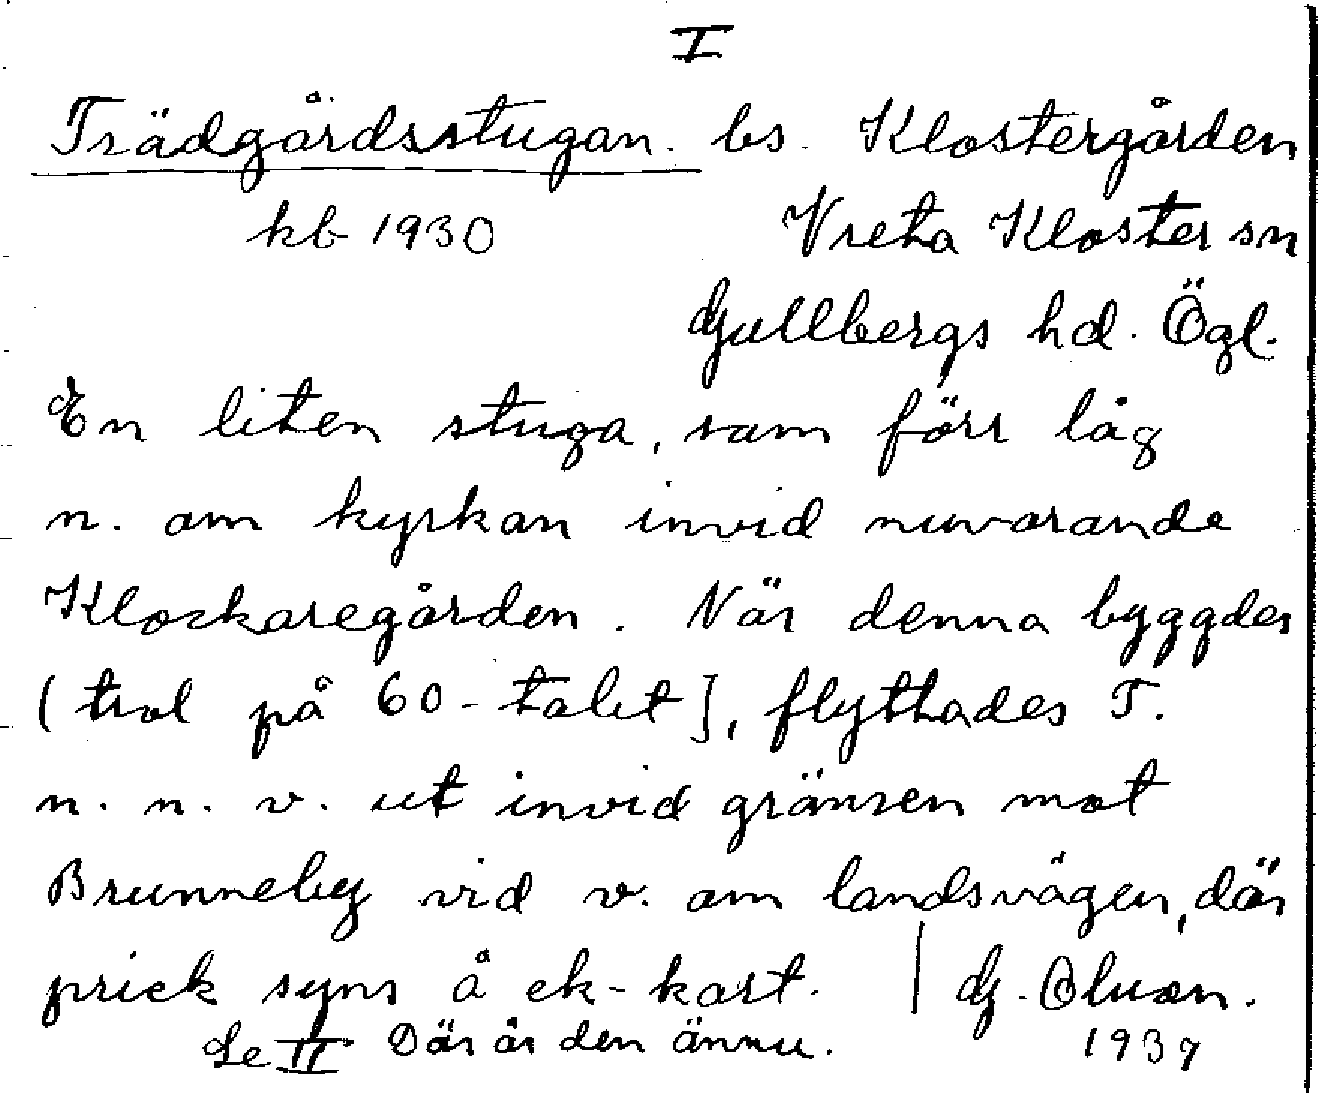 I
Trädgårdsstugan. bs. Klostergården
kb 1930 Vreta Kloster sn
Gullbergs hd. Ögl.
En liten stuga, som förr låg
n. om kyrkan invid nuvarande
Klockaregården. När denna byggdes
(trol på 60-talet], flyttades T.
n. n. v. ut invid gränsen mot
Brunneby vid v. om landsvägen, där
prick syns å ek-kart. | G. Olsson.
Se II Där är den ännu. 1937